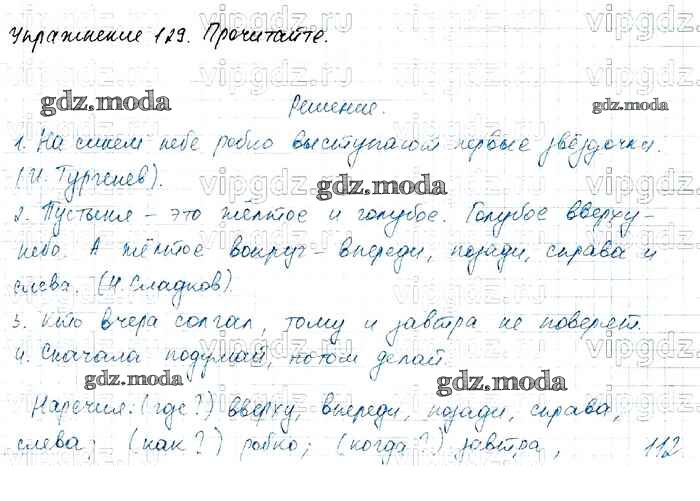 Упражнение 129. Прочитайте.
Решение.
1. На синем небе робко выступают первые звёздочки.
(И. Тургенев).
2. Пустыня - это жёлтое и голубое. Голубое вверху -
небо. А жёлтое вокруг - впереди, позади, справа и
слева. (Н. Сладков).
3. Кто вчера солгал, тому и завтра не поверят.
4. Сначала подумай, потом делай.
Наречия: (где?) вверху, впереди, позади, справа,
слева; (как?) робко; (когда?) завтра, 112
gdz.moda
gdz.moda
gdz.moda
gdz.moda
gdz.moda
vipgdz.ru